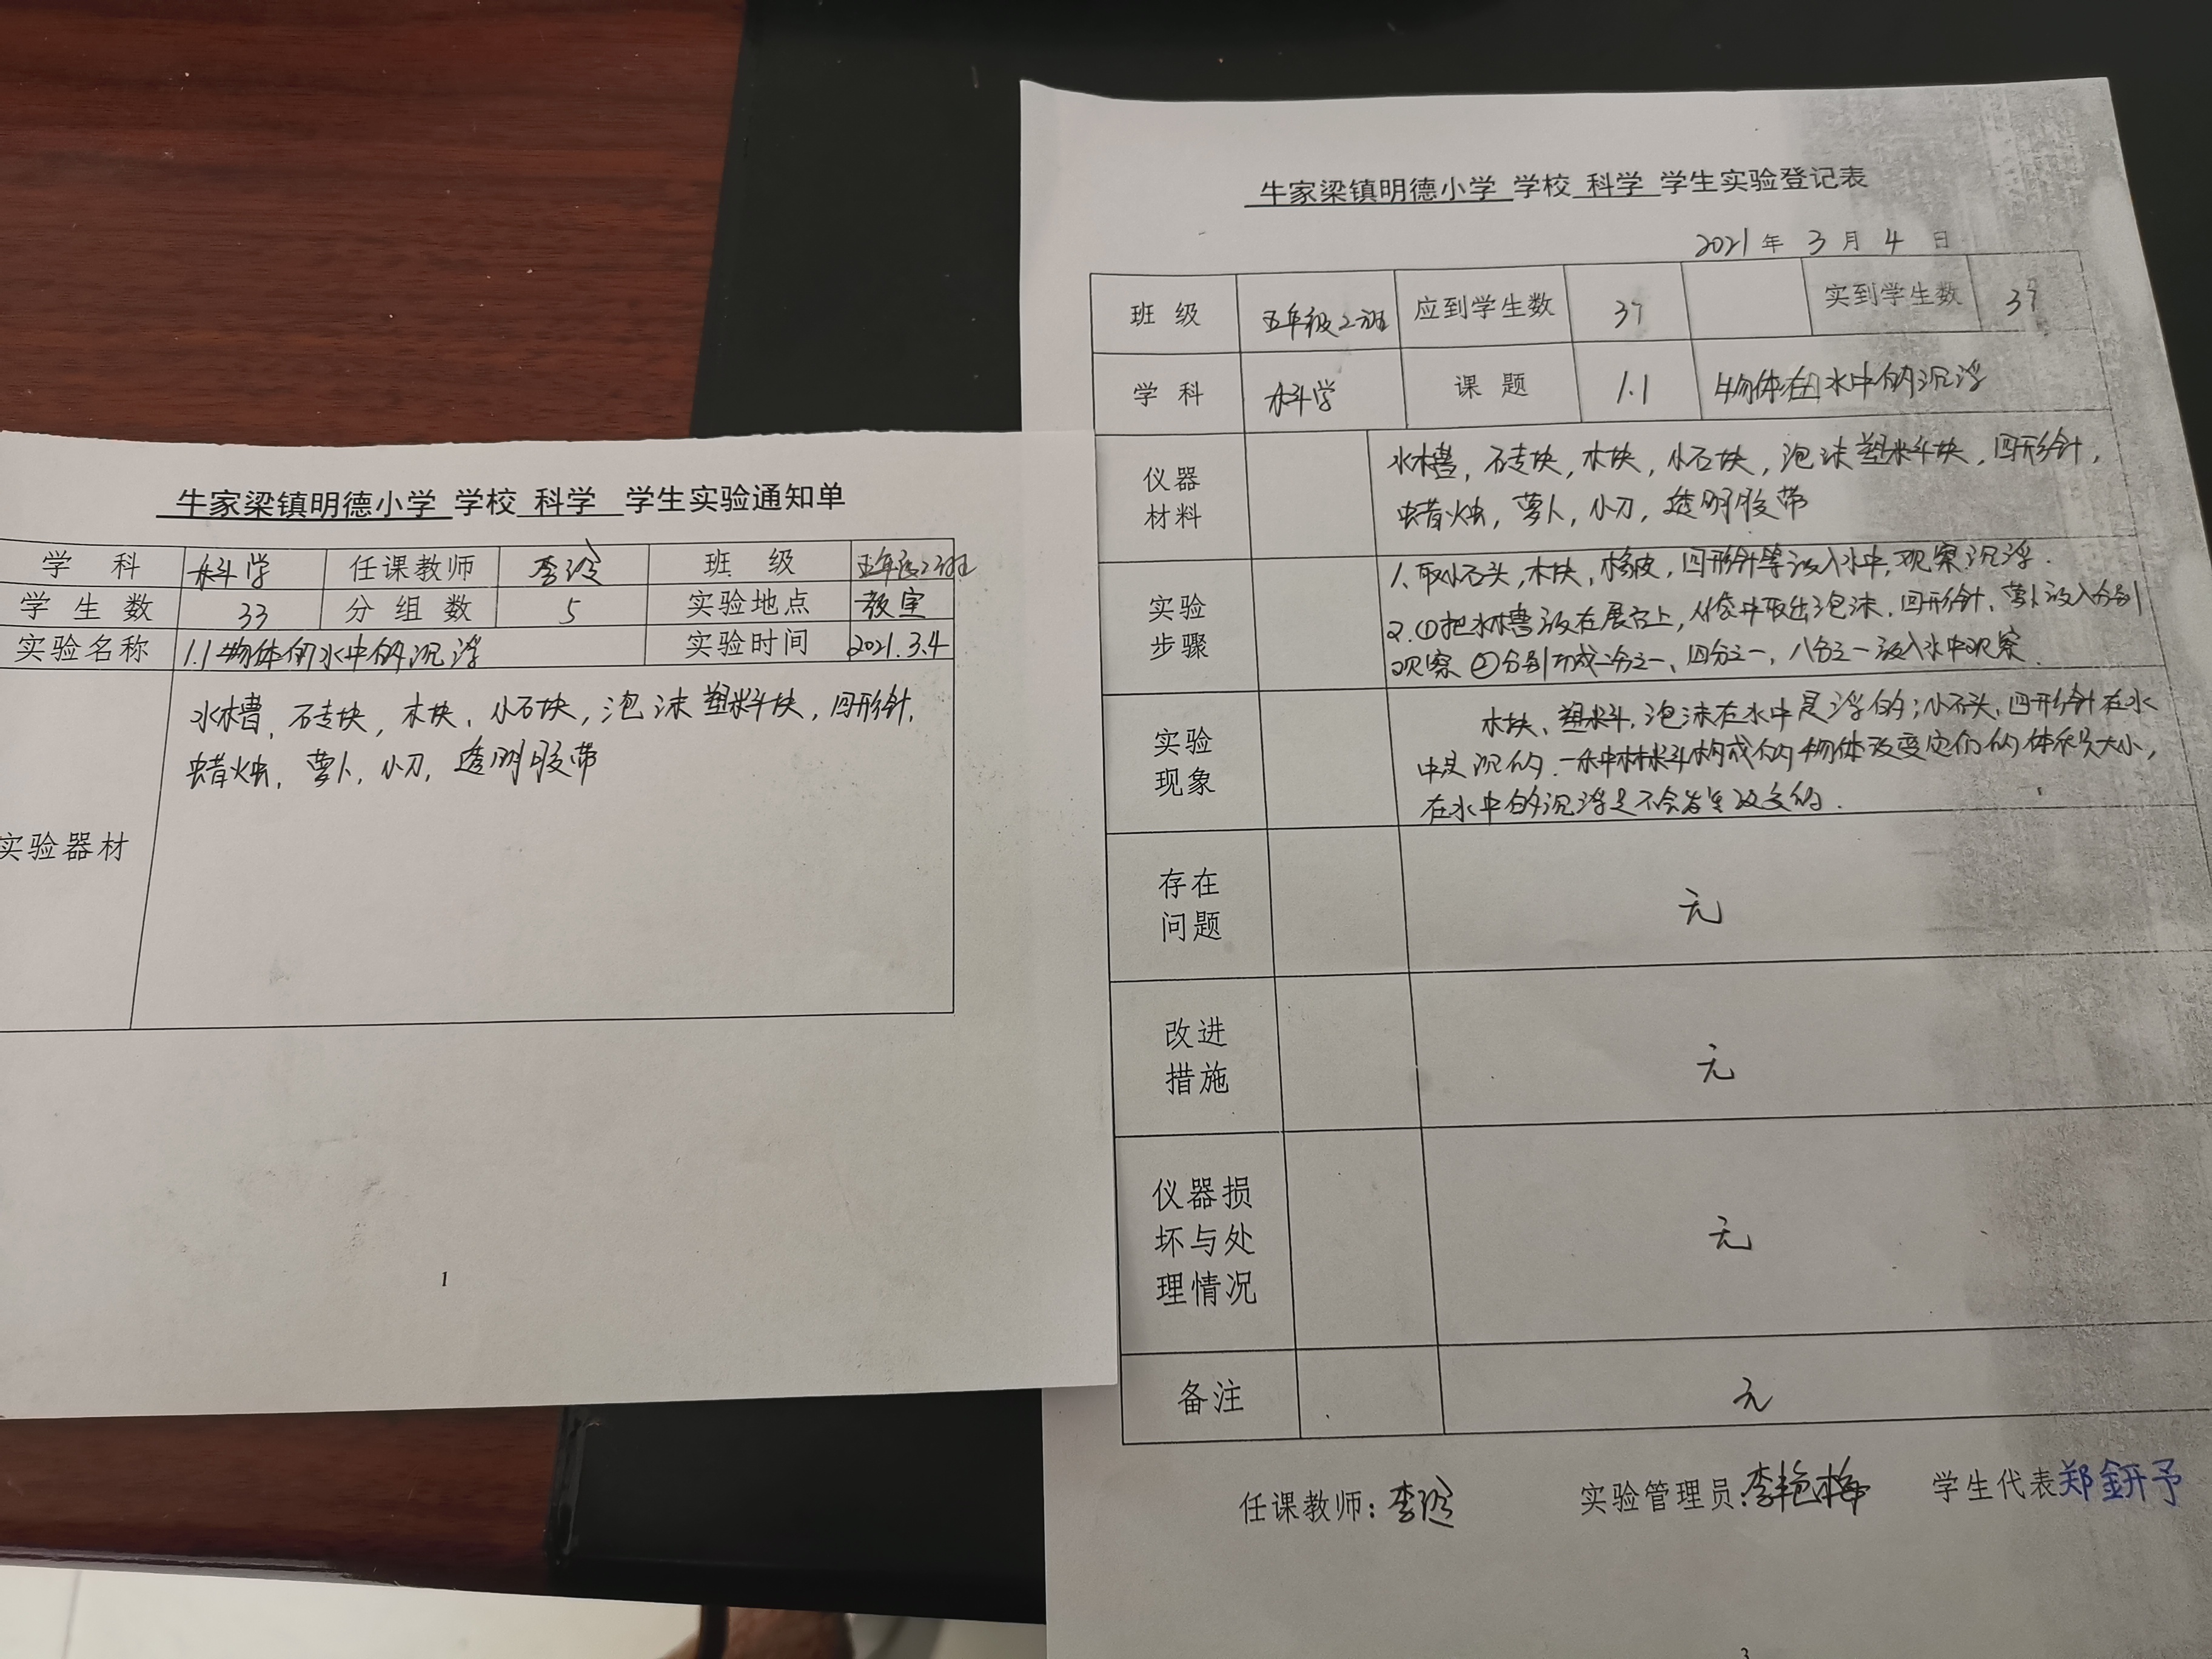 牛家梁镇明德小学 学校 科学 学生实验通知单
学科 科学 任课教师 李玲 班级 五年级2班
学生数 33 分组数 5 实验地点 教室
实验名称 1.1物体的水中的沉浮 实验时间 2021.3.4
实验器材
水槽，石专块，木块，小石块，泡沫塑料块，回形针，
蜡烛，萝卜，小刀，透明胶带
1
牛家梁镇明德小学 学校 科学 学生实验登记表
2021年 3月 4日
班级 五年级2班 应到学生数 37 实到学生数 37
学科 科学 课题 1.1 物体在水中的沉浮
仪器材料
水槽，石专块，木块，小石块，泡沫塑料块，回形针，
蜡烛，萝卜，小刀，透明胶带
实验步骤
1.取小石头，木块，橡皮，回形针等放入水中，观察沉浮.
2.①把水槽放在展台上，从袋中取出泡沫、回形针、萝卜放入分别
观察 ②分别切成二分之一、四分之一，八分之一放入水中观察.
实验现象
木块、塑料，泡沫在水中是浮的；小石头，回形针在水
中是沉的.一种材料构成的物体改变它们的体积大小，
在水中的沉浮是不会发生改变的.
存在问题
无
改进措施
无
仪器损坏与处理情况
无
备注
无
任课教师：李玲 实验管理员：李艳梅 学生代表 郑鈃予
3